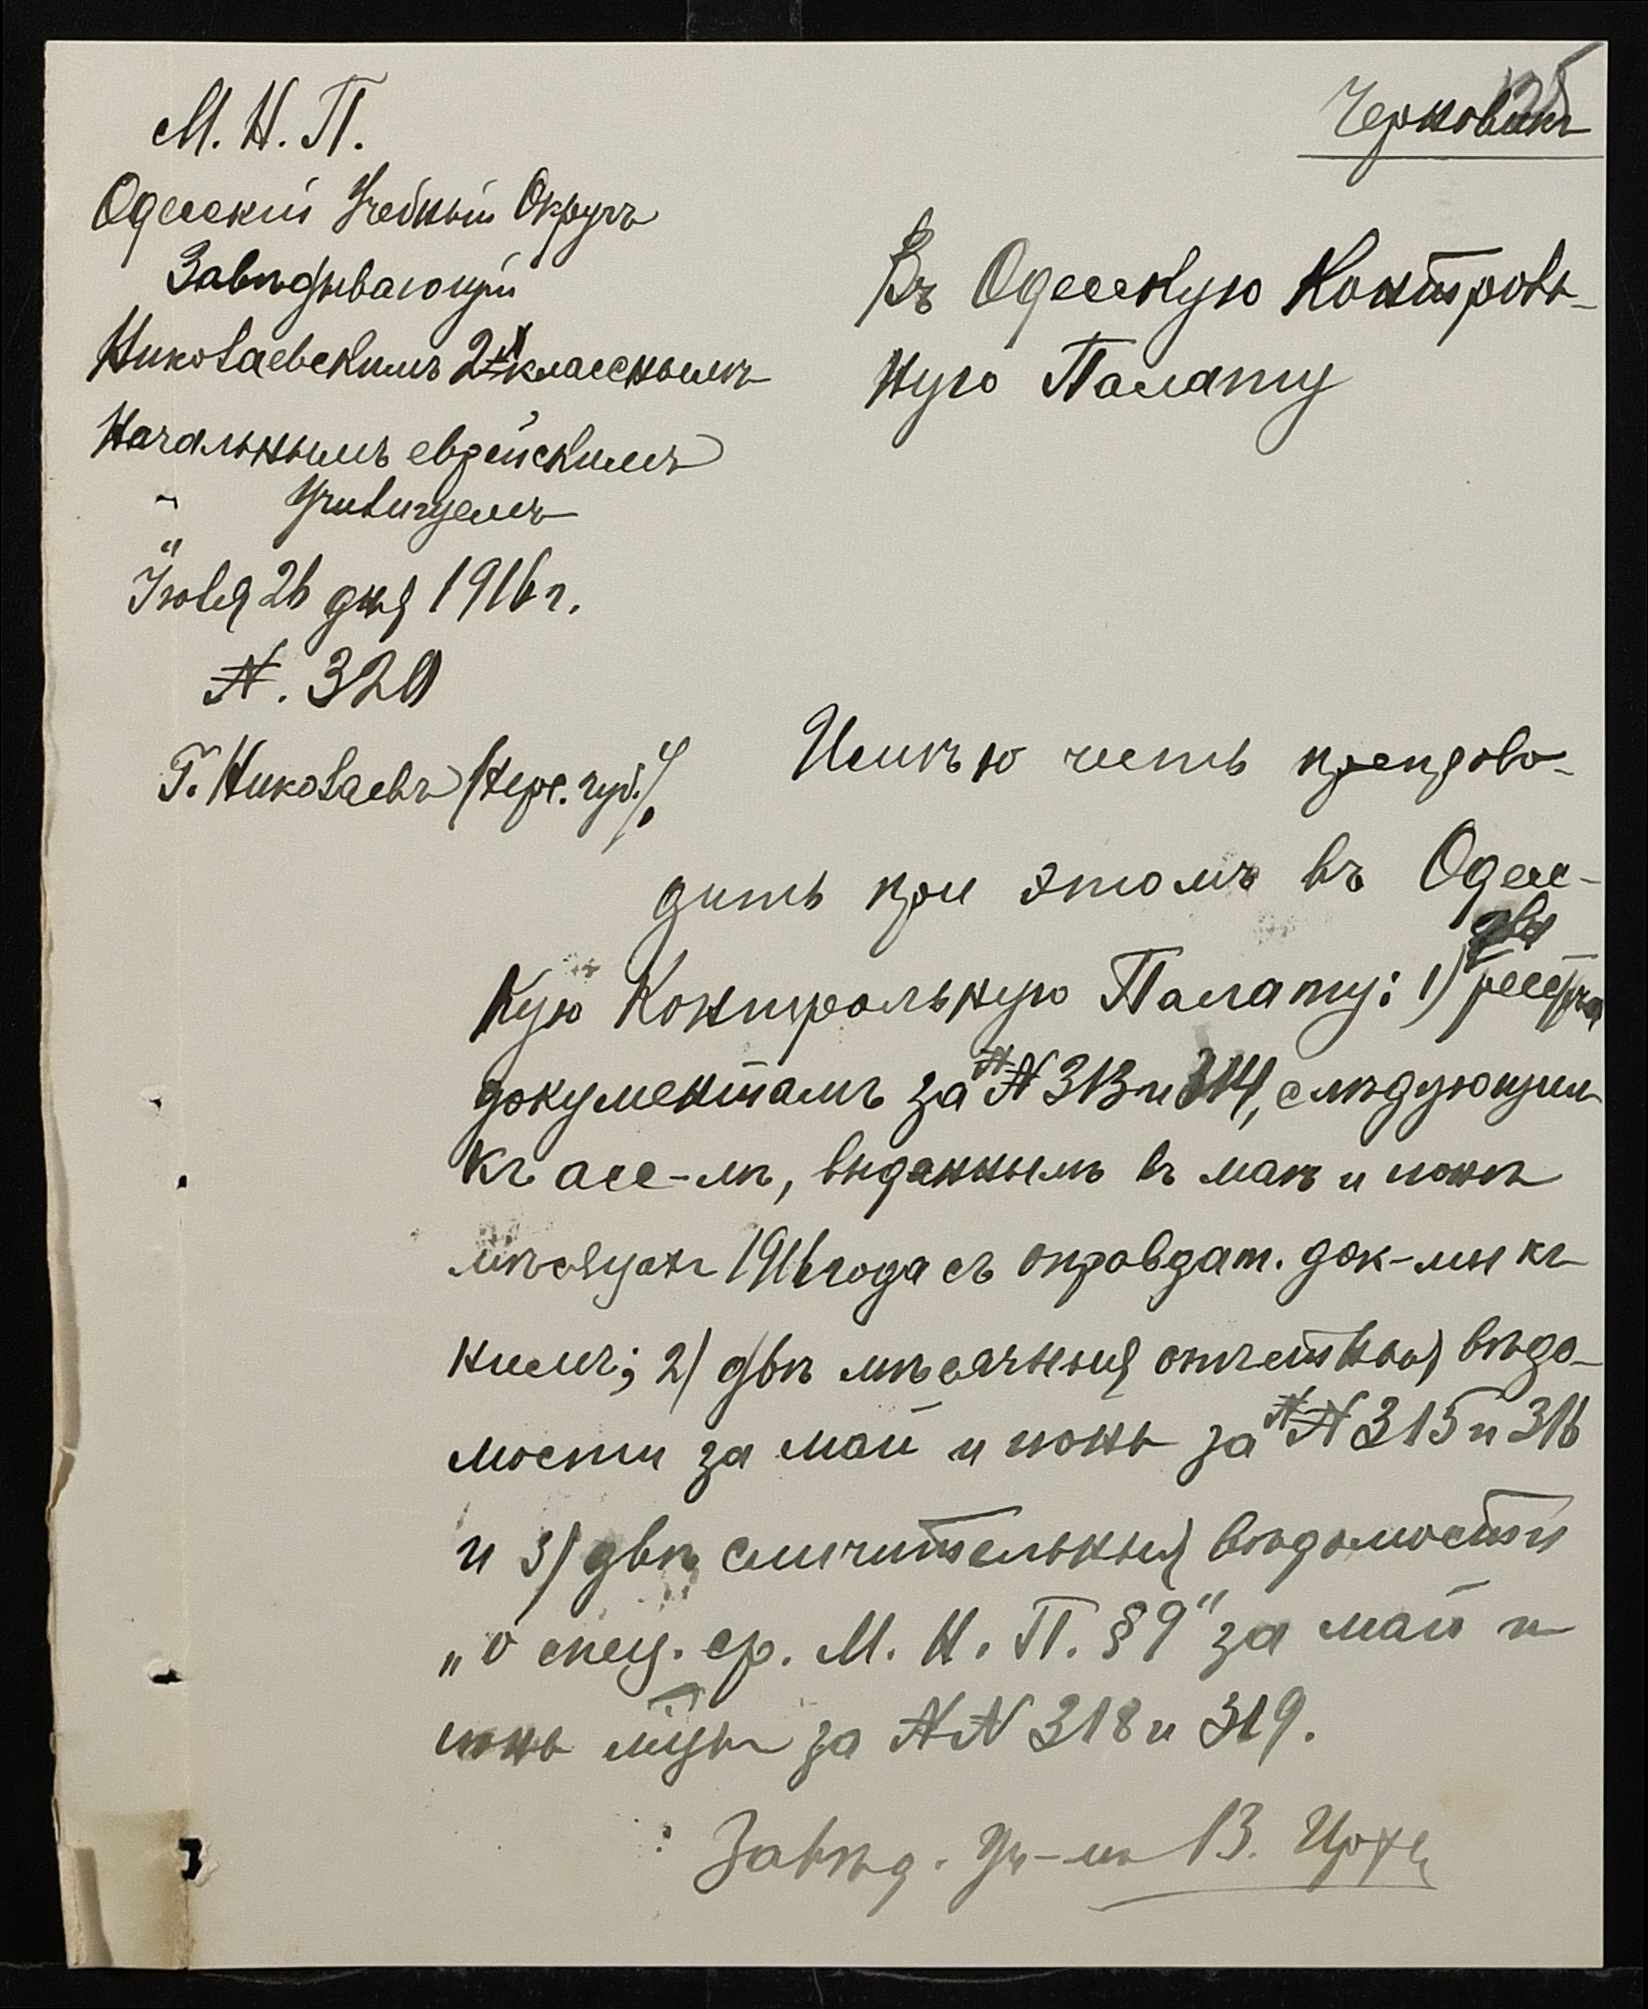 М. Н. П.
Одесскій Учебный Округъ
Завѣдывающій
Николаевскимъ 2хкласснымъ
Начальнымъ еврейскимъ
Училищемъ
Іюля 26 дня 1916 г.
№. 320
Г. Николаевъ (Херс. губ.).
Черновикъ
Въ Одесскую Контроль-
ную Палату
Имѣю честь препрово-
дить при этомъ въ Одес-
кую Контрольную Палату: 1) два реестра
документамъ за №№ 313 и 314, слѣдующимъ
къ асс-мъ, выданнымъ въ маѣ и іюнѣ
мѣсяцахъ 1916 года съ оправдат. док-ми къ
нимъ; 2) двѣ мѣсячныя отчетныя вѣдо-
мости за май и іюнь за №№ 315 и 316
и 3) двѣ сличительныя вѣдомости
„о спец. ср. М. Н. П. § 9" за май и
іюнь мцы за №№ 318 и 319.
Завѣд. Уч-мъ В.